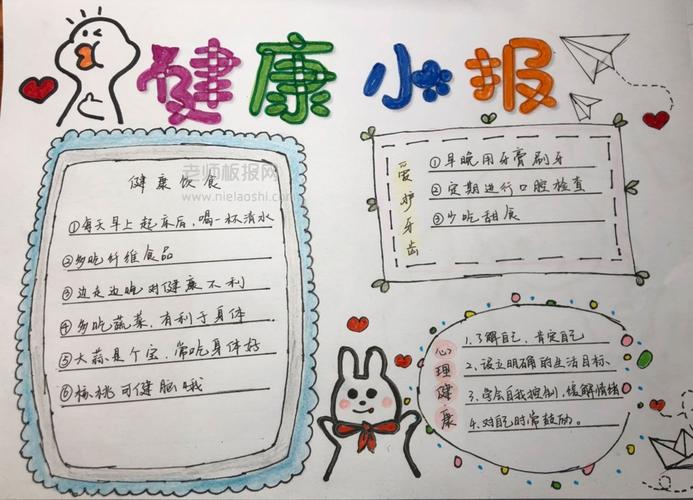 健康小报
老师板报网
www.nielaoshi.com
健康饮食
①每天早上起床后,喝一杯清水
②多吃纤维食品
③边走边吃对健康不利
④多吃蔬菜,有利于身体
⑤大蒜是个宝,常吃身体好
⑥核桃可健脑哦
爱护牙齿
①早晚用牙膏刷牙
②定期进行口腔检查
③少吃甜食
心理健康
1.了解自己,肯定自己
2.设立明确的生活目标
3.学会自我控制,缓解情绪
4.对自己时常鼓励。